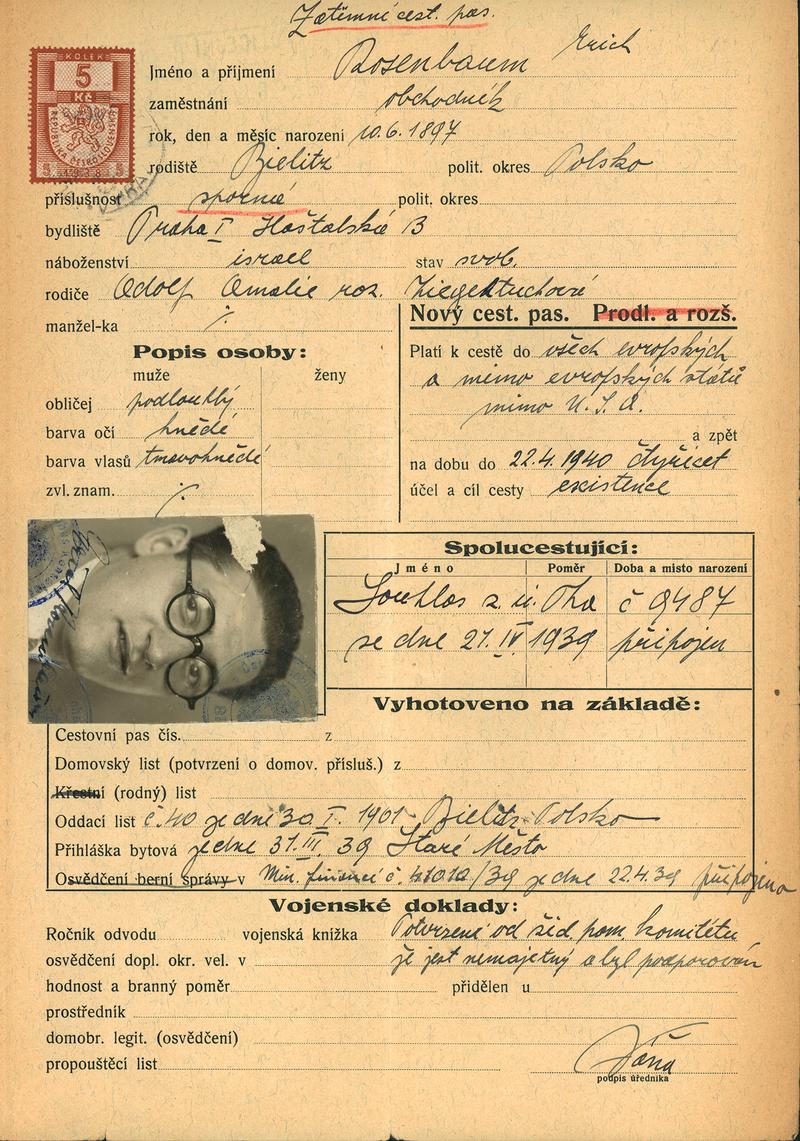 Zatímní cest. pas.
KOLEK
5
Kč
REPUBLIKA ČESKOSLOVENSKÁ
5 1938 5
Jméno a příjmení Rosenbaum Erich
zaměstnání obchodník
rok, den a měsíc narození 10.6.1897
rodiště Bielitz polit. okres Polsko
příslušnost sporná polit. okres
bydliště Praha I Haštalská 13
náboženství israel stav svob.
rodiče Adolf Amalie roz.
manžel-ka ·/.
Nový cest. pas. Prodl. a rozš.
Popis osoby:
muže ženy
obličej podlouhlý
barva očí hnědé
barva vlasů tmavohnědé
zvl. znam. ·/.
Platí k cestě do všech evropských
a mimo evropských států
mimo U.S.A.
a zpět
na dobu do 22.4.1940 čtyřicet
účel a cíl cesty existence
Spolucestující:
Jméno Poměr Doba a místo narození
Souhlas z. ú. Pha č 9487
ze dne 21.IV.1939 připojen
Vyhotoveno na základě:
Cestovní pas čís. z
Domovský list (potvrzení o domov. přísluš.) z
Křestní (rodný) list
Oddací list č.40 ze dne 30.I.1901 Bielitz-Polsko
Přihláška bytová ze dne 31.III.39 Staré Město
Osvědčení berní správy v Min. financí č. 41012/39 ze dne 22.4.39 připojeno
Vojenské doklady:
Ročník odvodu vojenská knížka Potvrzení od žid. pom. komitétu
osvědčení dopl. okr. vel. v že jest nemajetný a byl podporován
hodnost a branný poměr přidělen u
prostředník
domobr. legit. (osvědčení)
propouštěcí list
podpis úředníka